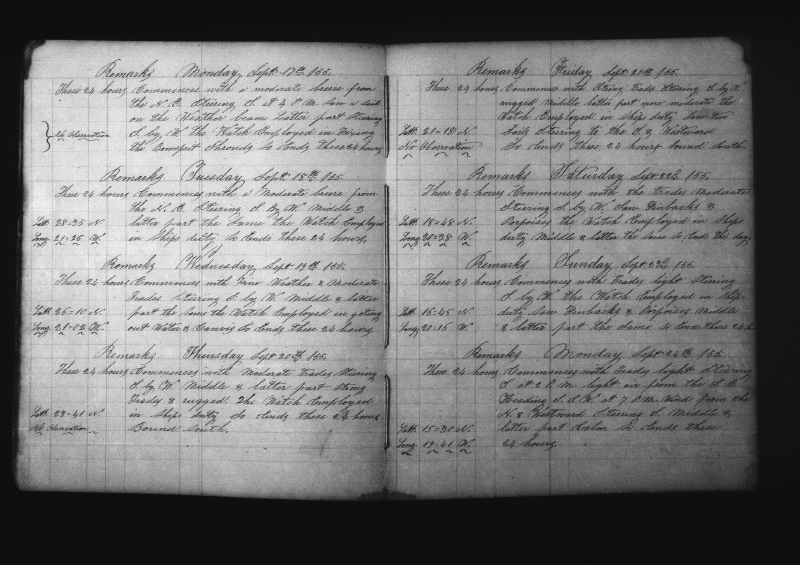 Remarks Monday Sept 17th 155.
These 24 hours Commences with a moderate breese from
the N. E. Steering S. at 4 P. M. Saw a Sail
on the Weather beam Latter part Steering
No Observation S. by W. the Watch Employed in
the Shrouds So Ends These 24 hours
Remarks Tuesday Sept 18th 155.
These 24 hours Commences with a Moderate breese from
the N. E. Steering S. By W. Middle &
Latt 28-35 N. latter part the Same the Watch Employed
Long 21-26 W. in Ships duty So Ends These 24 hours,
Remarks Wednesday Sept 19th 155.
These 24 hours Commences with Fine Weather & Moderate
Trades Steering S. by W. Middle & latter
Latt 26-10 N. part the Same the Watch Employed in geting
Long 21-02 W. out Water & Canvis So Ends these 24 hours
Remarks Thursday Sept 20th 155.
These 24 hours Commences with Moderate Trades Steering
S. by W. Middle & latter part Strong
Trades & rugged. The Watch Employed
Latt 23-41 N. in Ships duty So Ends these 24 hours
No Obsavation Bound South.
Remarks Friday Sept 21st 155.
These 24 hours Commences with Strong Trades Steering S. by W.
rugged Middle latter part more moderate the
Watch Employed in Ships duty Saw two
Latt 21-18 N. Sails Steering to the S. & Westward
No Observation So Ends these 24 hours bound South.
Remarks Saturday Sept 22d 155.
These 24 hours Commences with the Trades Moderate
Steering S. by W. Saw Finbacks &
Latt 18-48 N. Porpoises the Watch Employed in Ships
Long 20-38 W. duty Middle & latter the Same So Ends this day,
Remarks Sunday Sept 23d 155.
These 24 hours Commences with Trades light Steering
S. by W. the Watch Employed in Ships
Latt 16-45 N. duty Saw Finbacks & Porpoises Middle
Long 20-15 W. & latter part the Same So Ends these 24 h
Remarks Monday Sept 24th 155
These 24 hours Commences with Trades light Steering
S. at 2 P. M. light air from the S. E.
Heading S. S. W. at 7 P. M. Wind from the
N. & Westward Steering S. Middle &
Latt 15-30 N. latter part Calm So Ends these
Long 19-41 W. 24 hours